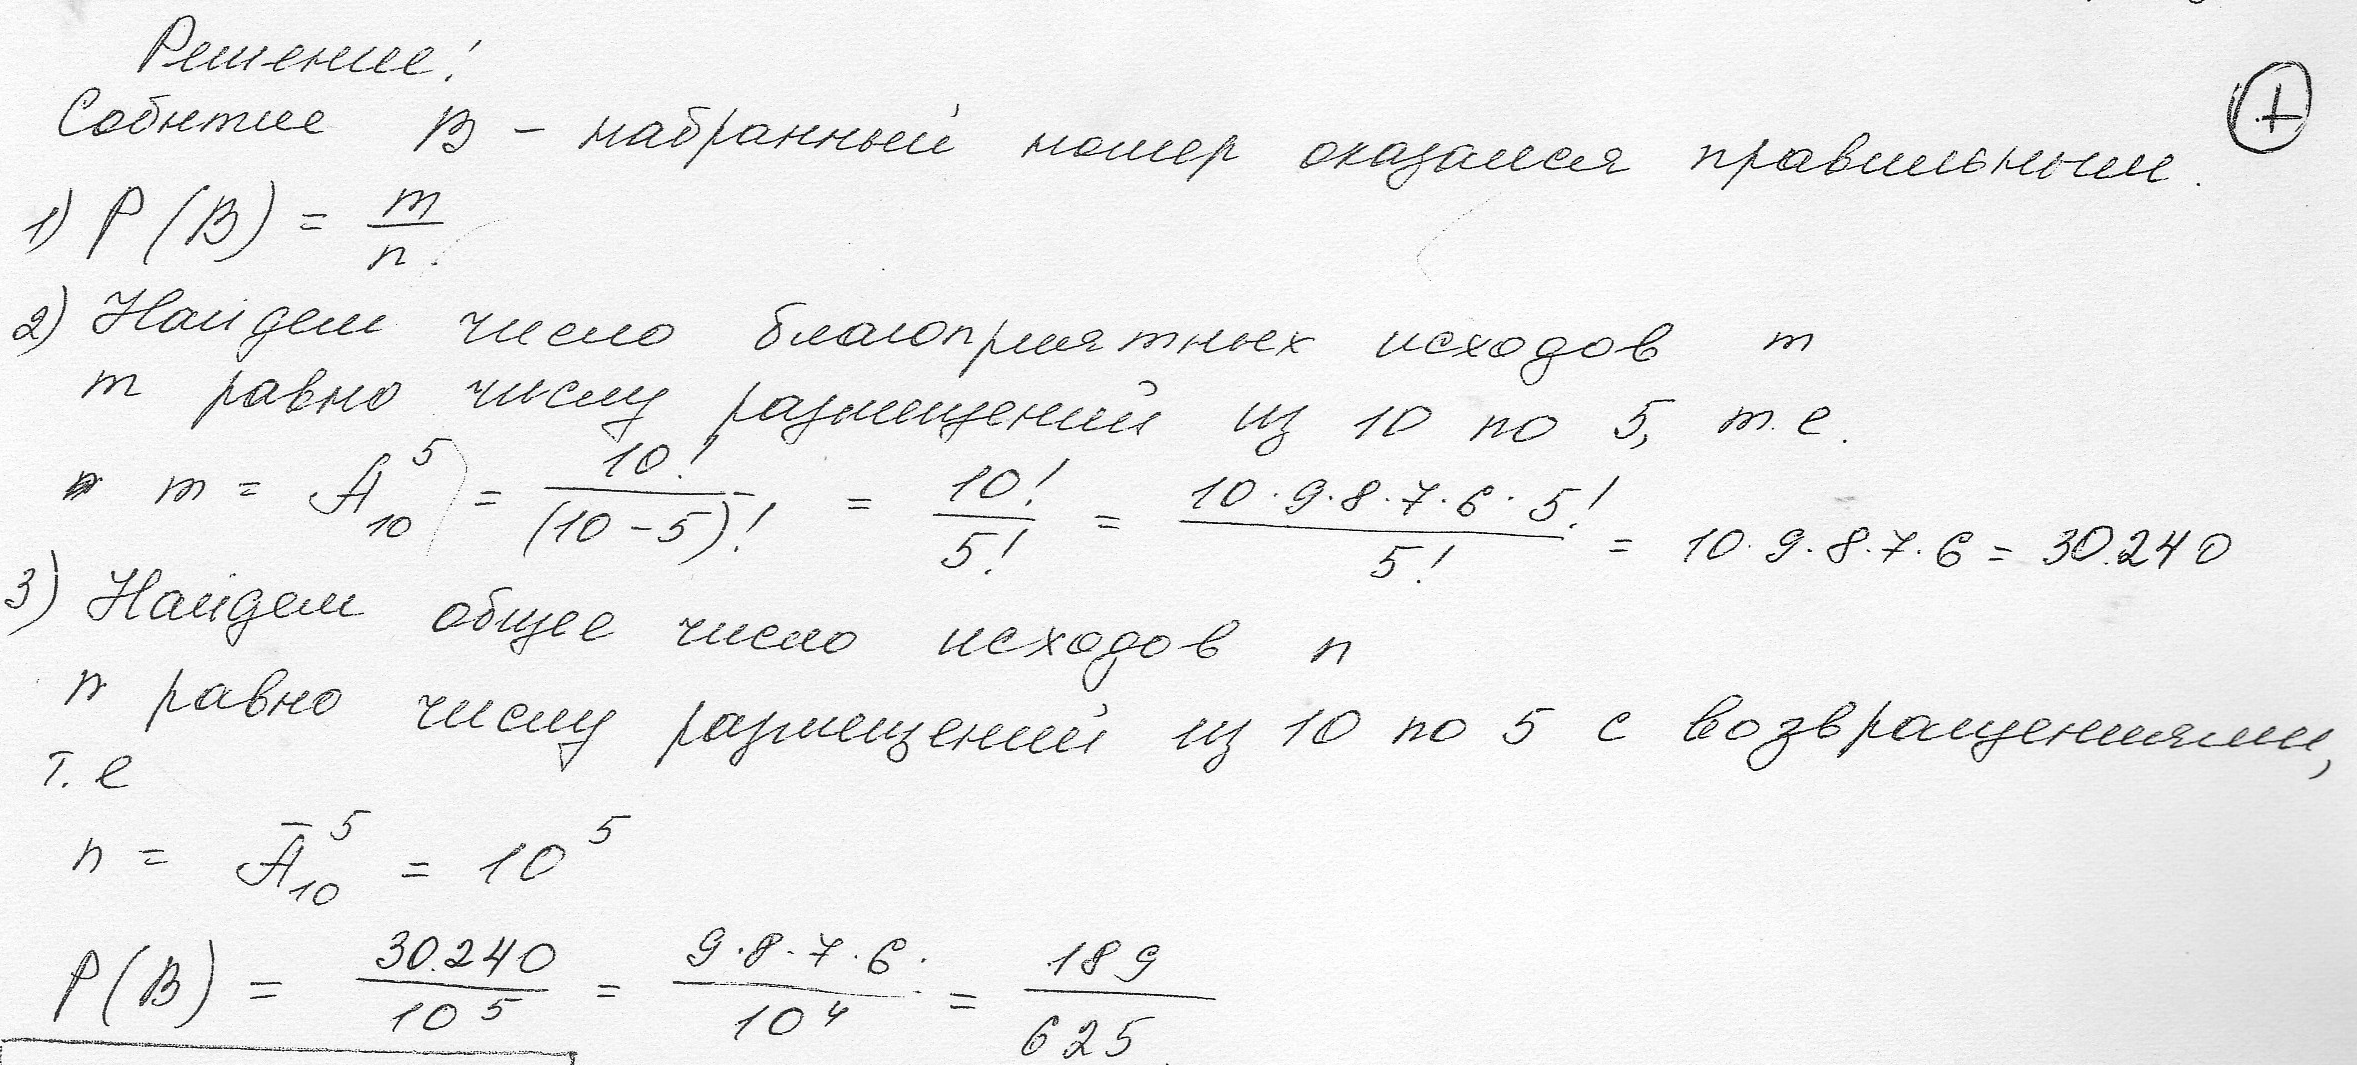 Решение!
Событие B – набранный номер оказался правильным.
+
1) P(B) = m/n.
2) Найдем число благоприятных исходов m
m равно числу размещений из 10 по 5, т.е.
m = A₁₀⁵ = 10!/(10-5)! = 10!/5! = 10·9·8·7·6·5!/5! = 10·9·8·7·6 = 30.240
3) Найдем общее число исходов n
n равно числу размещений из 10 по 5 с возвращениями,
т.е
n = Ā₁₀⁵ = 10⁵
P(B) = 30.240/10⁵ = 9·8·7·6·/10⁴ = 189/625